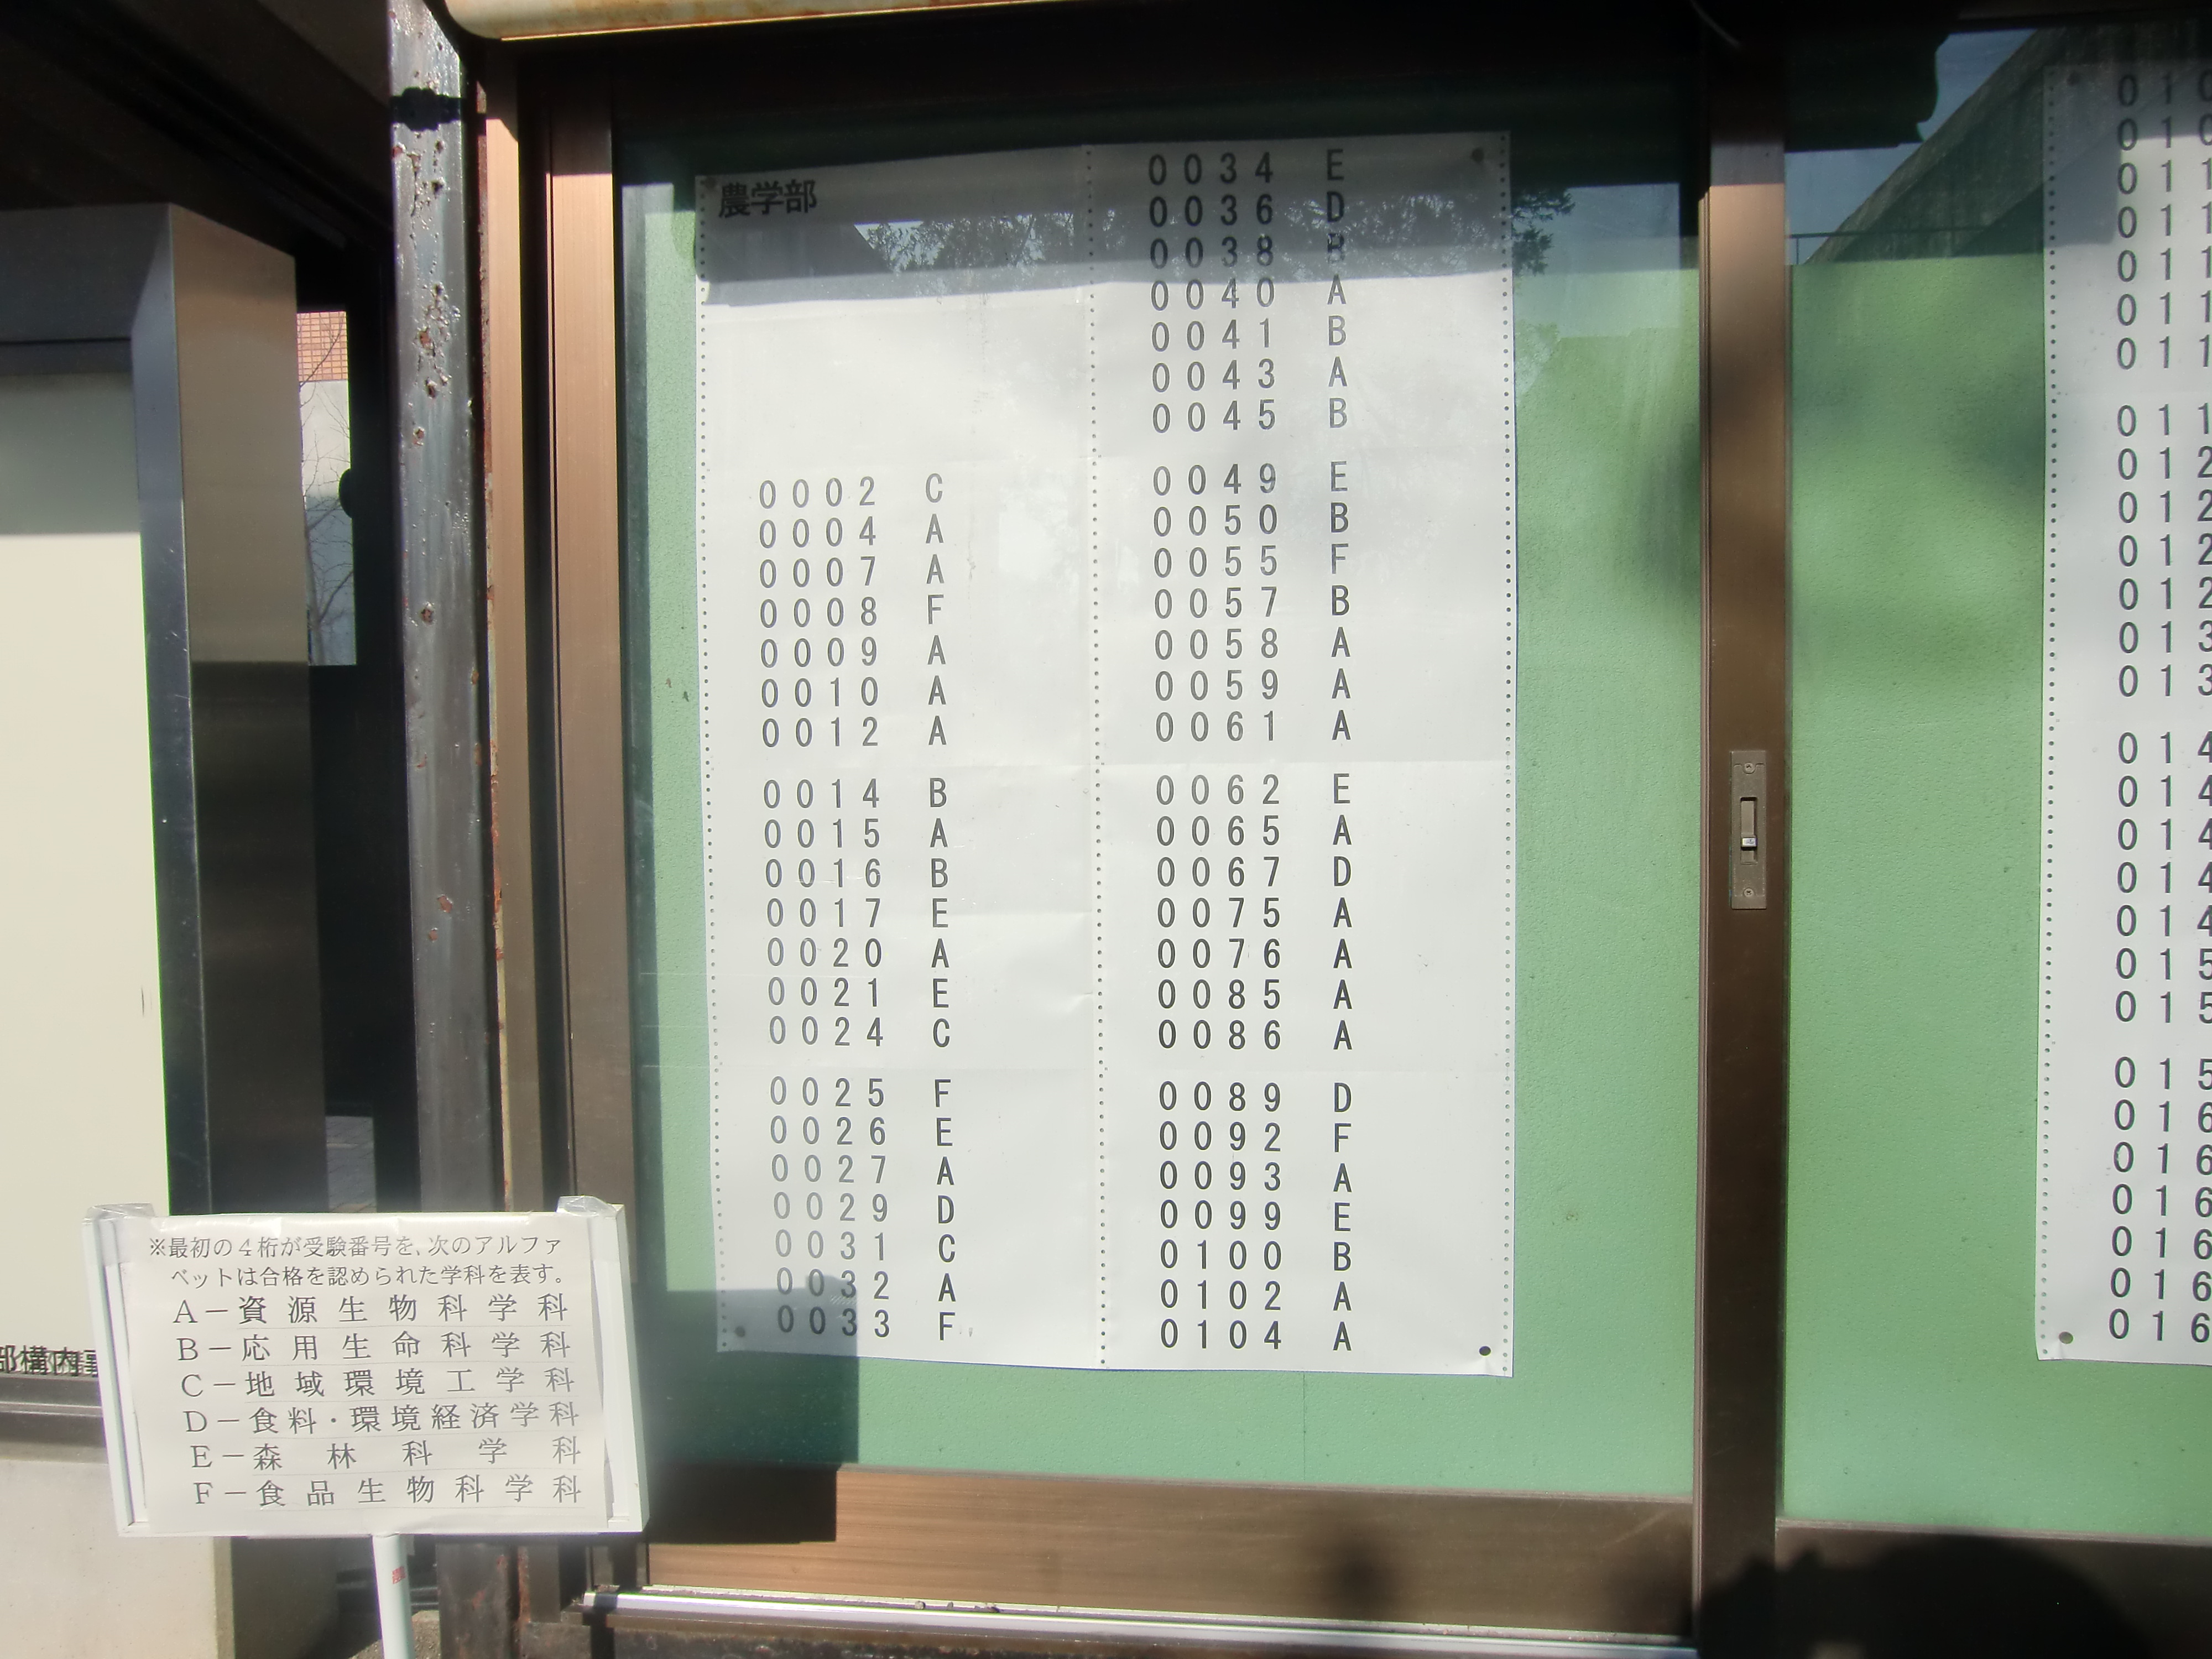 農学部
0002 C
0004 A
0007 A
0008 F
0009 A
0010 A
0012 A
0014 B
0015 A
0016 B
0017 E
0020 A
0021 E
0024 C
0025 F
0026 E
0027 A
0029 D
0031 C
0032 A
0033 F
0034 E
0036 D
0038 B
0040 A
0041 B
0043 A
0045 B
0049 E
0050 B
0055 F
0057 B
0058 A
0059 A
0061 A
0062 E
0065 A
0067 D
0075 A
0076 A
0085 A
0086 A
0089 D
0092 F
0093 A
0099 E
0100 B
0102 A
0104 A
010
010
011
011
011
011
011
011
012
012
012
012
013
013
014
014
014
014
014
015
015
015
016
016
016
016
016
016
※最初の4桁が受験番号を、次のアルファ
ベットは合格を認められた学科を表す。
A－資源生物科学科
B－応用生命科学科
C－地域環境工学科
D－食料・環境経済学科
E－森林科学科
F－食品生物科学科
部構内